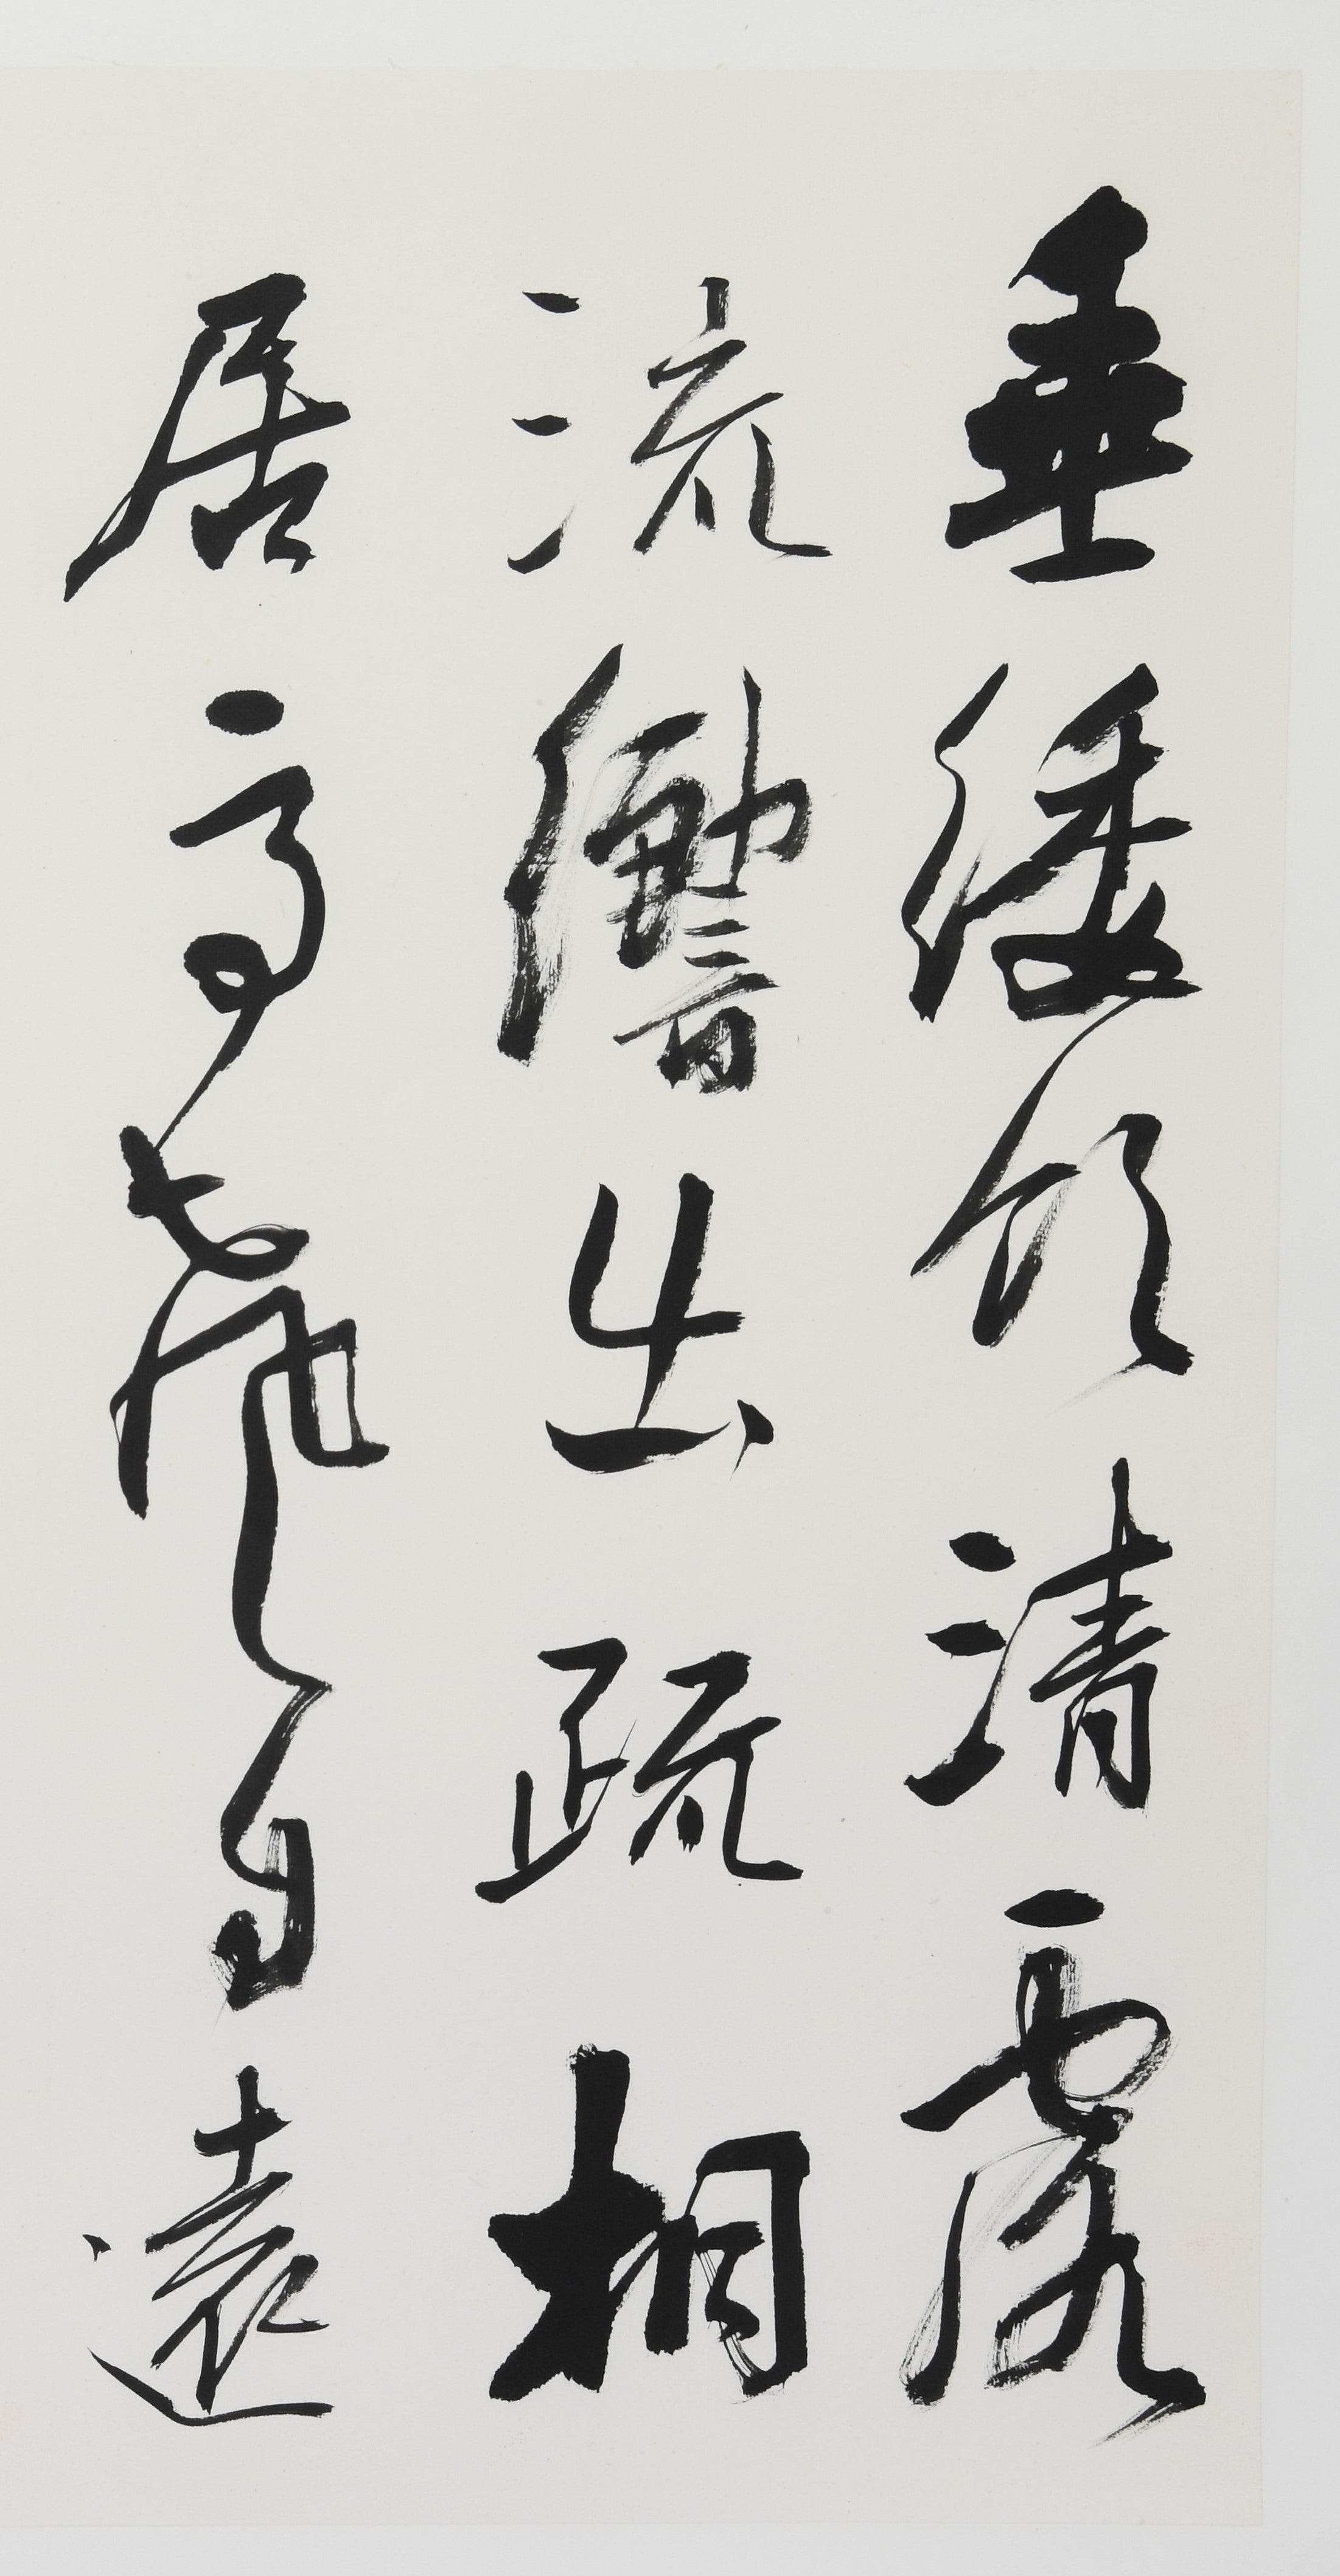 垂緌飲清露
流響出疏桐
居高聲自遠